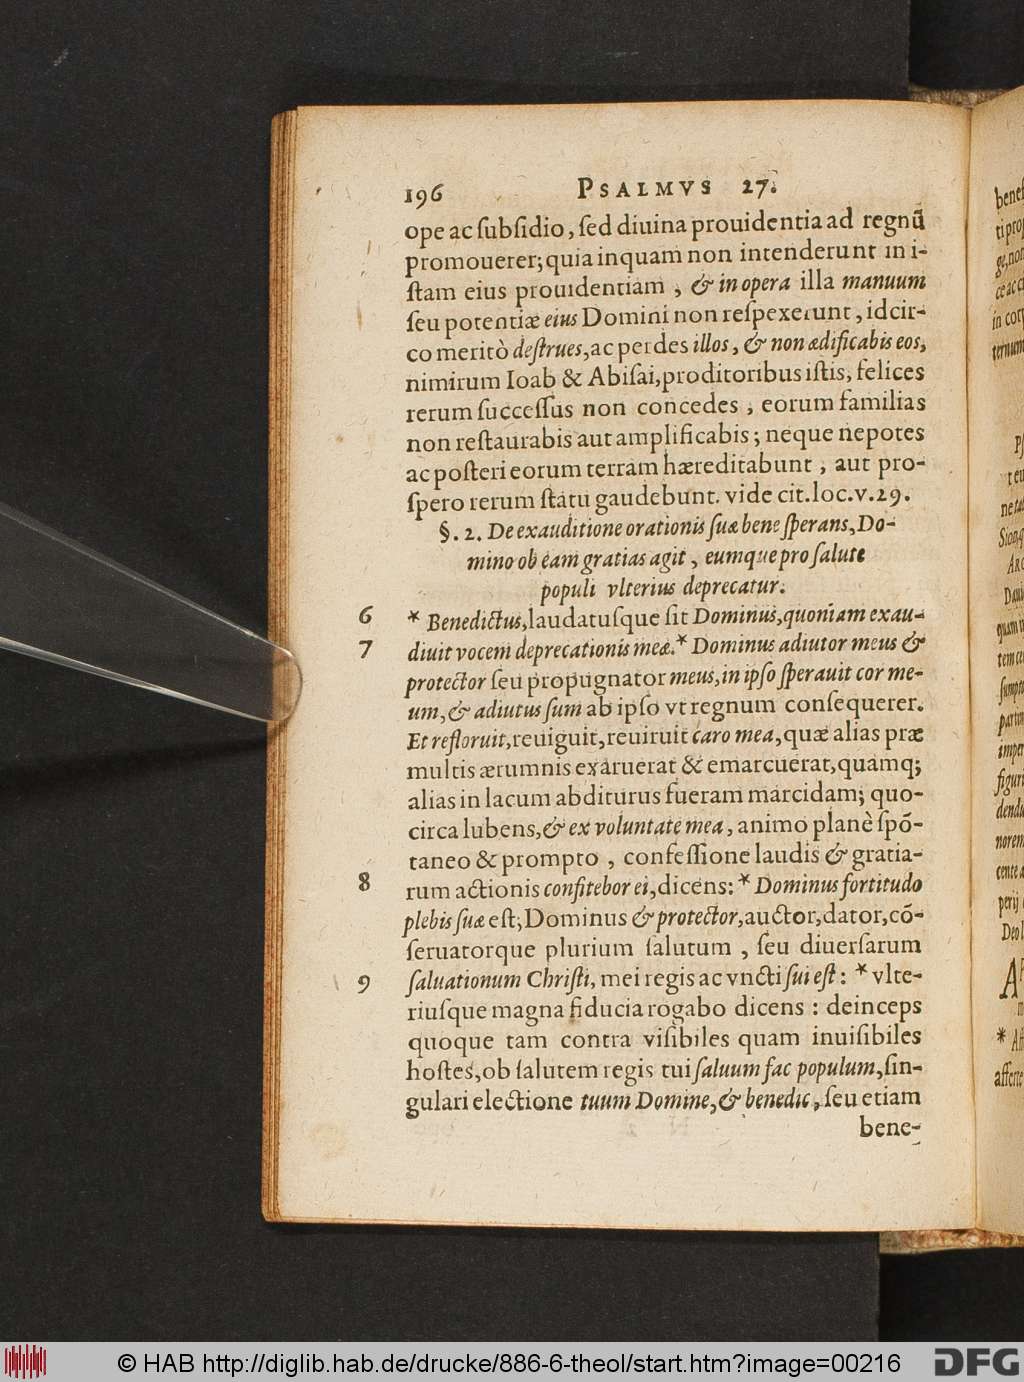 196 PSALMVS 27.
ope ac ſubſidio, ſed diuina prouidentia ad regnū
promouerer; quia inquam non intenderunt in i-
ſtam eius prouidentiam, & in opera illa manuum
ſeu potentiæ eius Domini non reſpexerunt, idcir-
co meritò deſtrues, ac perdes illos, & non ædificabis eos,
nimirum Ioab & Abiſai, proditoribus iſtis, felices
rerum ſucceſſus non concedes, eorum familias
non reſtaurabis aut amplificabis; neque nepotes
ac poſteri eorum terram hæreditabunt, aut pro-
ſpero rerum ſtatu gaudebunt. vide cit. loc. v. 29.
§. 2. De exauditione orationis ſuæ bene ſperans, Do-
mino ob eam gratias agit, eumque pro ſalute
populi vlterius deprecatur.
6 * Benedictus, laudatuſque ſit Dominus, quoniam exau-
7 diuit vocem deprecationis meæ. * Dominus adiutor meus &
protector ſeu propugnator meus, in ipſo ſperauit cor me-
um, & adiutus ſum ab ipſo vt regnum conſequerer.
Et refloruit, reuiguit, reuiruit caro mea, quæ alias præ
multis ærumnis exaruerat & emarcuerat, quamq;
alias in lacum abditurus fueram marcidam; quo-
circa lubens, & ex voluntate mea, animo planè ſpō-
taneo & prompto, confeſſione laudis & gratia-
8 rum actionis confitebor ei, dicens: * Dominus fortitudo
plebis ſuæ eſt; Dominus & protector, auctor, dator, cō-
ſeruatorque plurium ſalutum, ſeu diuerſarum
9 ſaluationum Chriſti, mei regis ac vncti ſui eſt: * vlte-
riuſque magna fiducia rogabo dicens: deinceps
quoque tam contra viſibiles quam inuiſibiles
hoſtes, ob ſalutem regis tui ſaluum fac populum, ſin-
gulari electione tuum Domine, & benedic, ſeu etiam
bene-
© HAB http://diglib.hab.de/drucke/886-6-theol/start.htm?image=00216
DFG